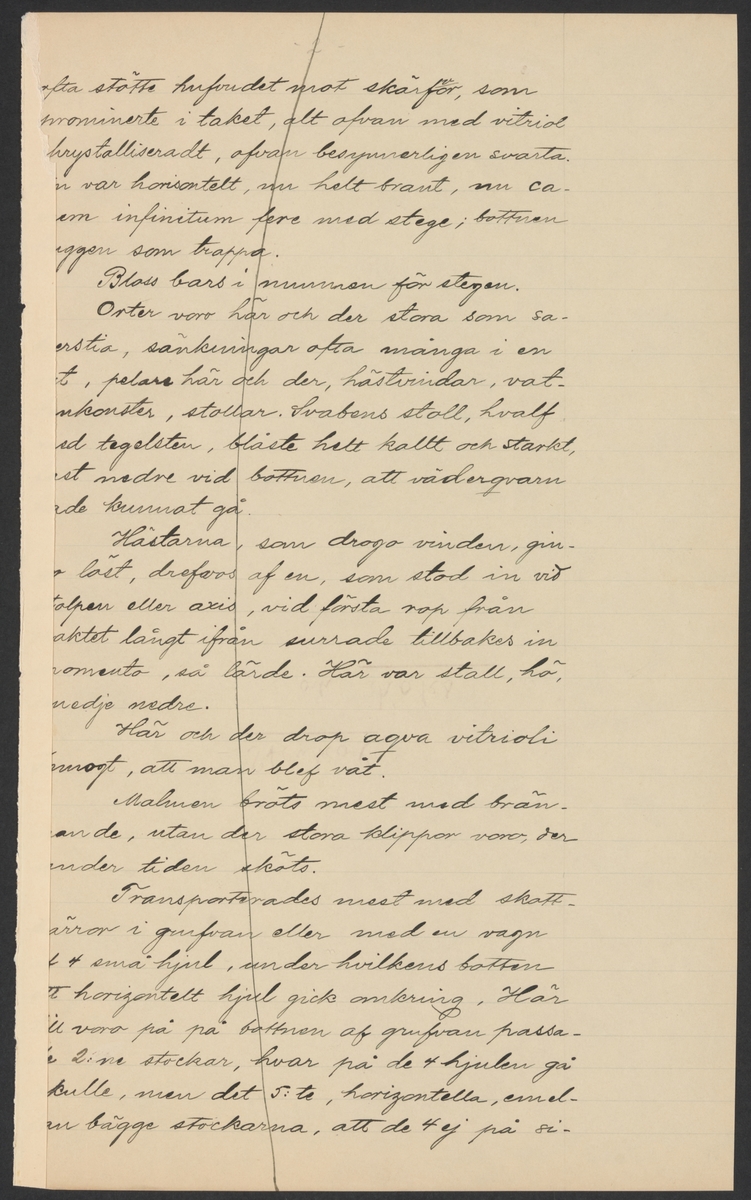 ofta stötte hufvudet mot skärfvor, som
prominerte i taket, alt ofvan med vitriol
krystalliseradt, ofvan besynnerligen svarta.
n var horisontelt, nu helt brant, nu ca-
em infinitum fere med stege; bottnen
uggen som trappa.
Bloss bars i munnen för stegen.
Orter voro här och der stora som sa-
erstia, sänkningar ofta många i en
t, pelare här och der, hästvindar, vat-
nkonster, stollar. Svabens stoll, hvalf
ed tegelsten, blåste helt kallt och starkt,
est nedre vid bottnen, att vädergvarn
ade kunnat gå.
Hästarna, som drogo vinden, gin-
o löst, drefvos af en, som stod in vid
tolpen eller axis, vid första rop från
aktet långt ifrån surrade tillbakes in
momento, så lärde. Här var stall, hö,
medje nedre.
Här och der drop aqva vitrioli
ymnogt, att man blef våt.
Malmen bröts mest med brän-
ande, utan der stora klippor voro, der
under tiden sköts.
Transporterades mest med skott-
ärror i grufvan eller med en vagn
t 4 små hjul, under hvilkens botten
tt horizontelt hjul gick omkring. Här
ll voro på på bottnen af grufvan passa-
e 2:ne stockar, hvar på de 4 hjulen gå
kulle, men det 5:te, horizontella, emel-
an bägge stockarna, att de 4 ej på si-